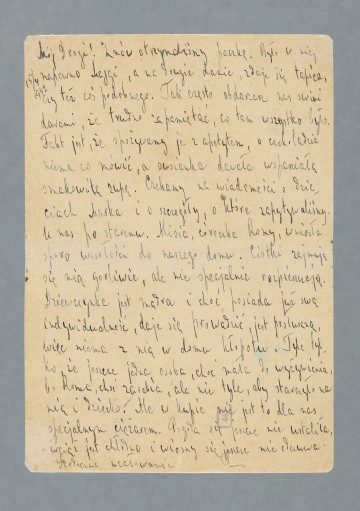 Mój Drogi! Znów otrzymaliśmy paczkę. Było w niej
15/4
napewno , a na drugie danie, zdaje się
czy też coś podobnego. Tak często obdarzasz nas swymi
darami, że trudno zapamiętać, co tam wszystko było.
Fakt jest, że spożywamy je z apetytem, o czekoladzie
niema co mówić, a owsianka dawała wspaniałą
smakowitą zupę. Czekamy na wiadomości o dzie
ciach i o szczegóły, o które zapytywaliśmy.
U nas po staremu. Misia, córeczka Romy, wniosła
sporo wesołości do naszego domu. Ciotki zajmują
się nią gorliwie, ale nie specjalnie rozpieszczają.
Dziewczynka jest mądra i choć posiada już swą
indywidualność, daje się prowadzić, jest posłuszną,
więc niema z nią w domu kłopotu. Tyle tyl
ko, że jeszcze jedna osoba, choć mała do wyżywienia,
bo Roma, choć zarabia, ale nie tyle, aby starczyło na
nią i dziecko. Ale w kupie nie jest to dla nas
specjalnym ciężarem. Pogoda się jeszcze nie ustaliła,
wciąż jest chłodno i wiosny się jeszcze nie
ucałowania